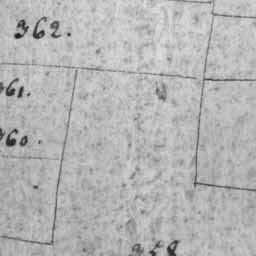 362.
361.
360.
358